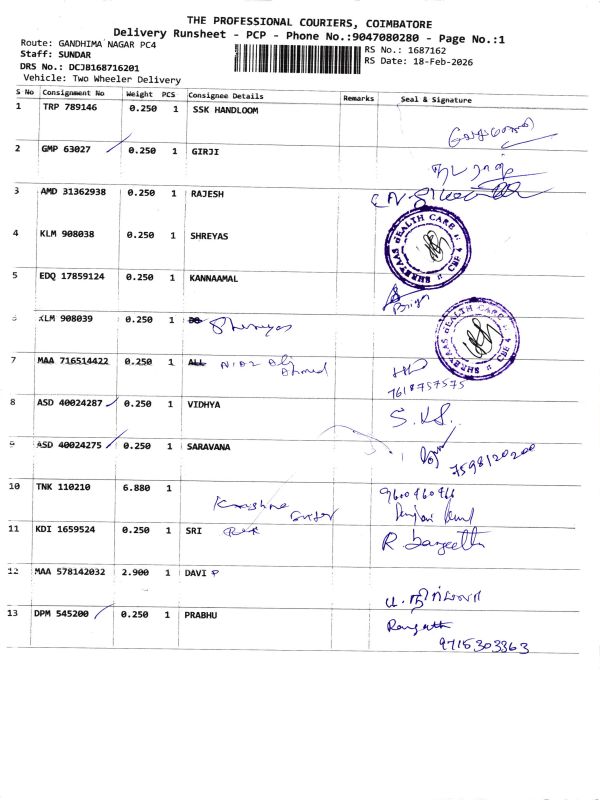 THE PROFESSIONAL COURIERS, COIMBATORE
Delivery Runsheet - PCP - Phone No.:9047080280 - Page No.:1
Route: GANDHIMA NAGAR PC4
RS No.: 1687162
Staff: SUNDAR
RS Date: 18-Feb-2026
DRS No.: DCJ8168716201
Vehicle: Two Wheeler Delivery
S No Consignment No Weight PCS Consignee Details Remarks Seal & Signature
1 TRP 789146 0.250 1 SSK HANDLOOM
2 GMP 63027 0.250 1 GIRJI
3 AMD 31362938 0.250 1 RAJESH
4 KLM 908038 0.250 1 SHREYAS
SHREYAAS HEALTH CARE CBE 4
5 EDQ 17859124 0.250 1 KANNAAMAL
6 KLM 908039 0.250 1 Shreyas
SHREYAAS HEALTH CARE CBE 4
7 MAA 716514422 0.250 1 ALL Ahmed
7618757575
8 ASD 40024287 0.250 1 VIDHYA
S.K.S.
9 ASD 40024275 0.250 1 SARAVANA
7598120200
10 TNK 110210 6.880 1
9600460466
11 KDI 1659524 0.250 1 SRI
R. Sangeetha
12 MAA 578142032 2.900 1 DAVI P
13 DPM 545200 0.250 1 PRABHU
9715303363